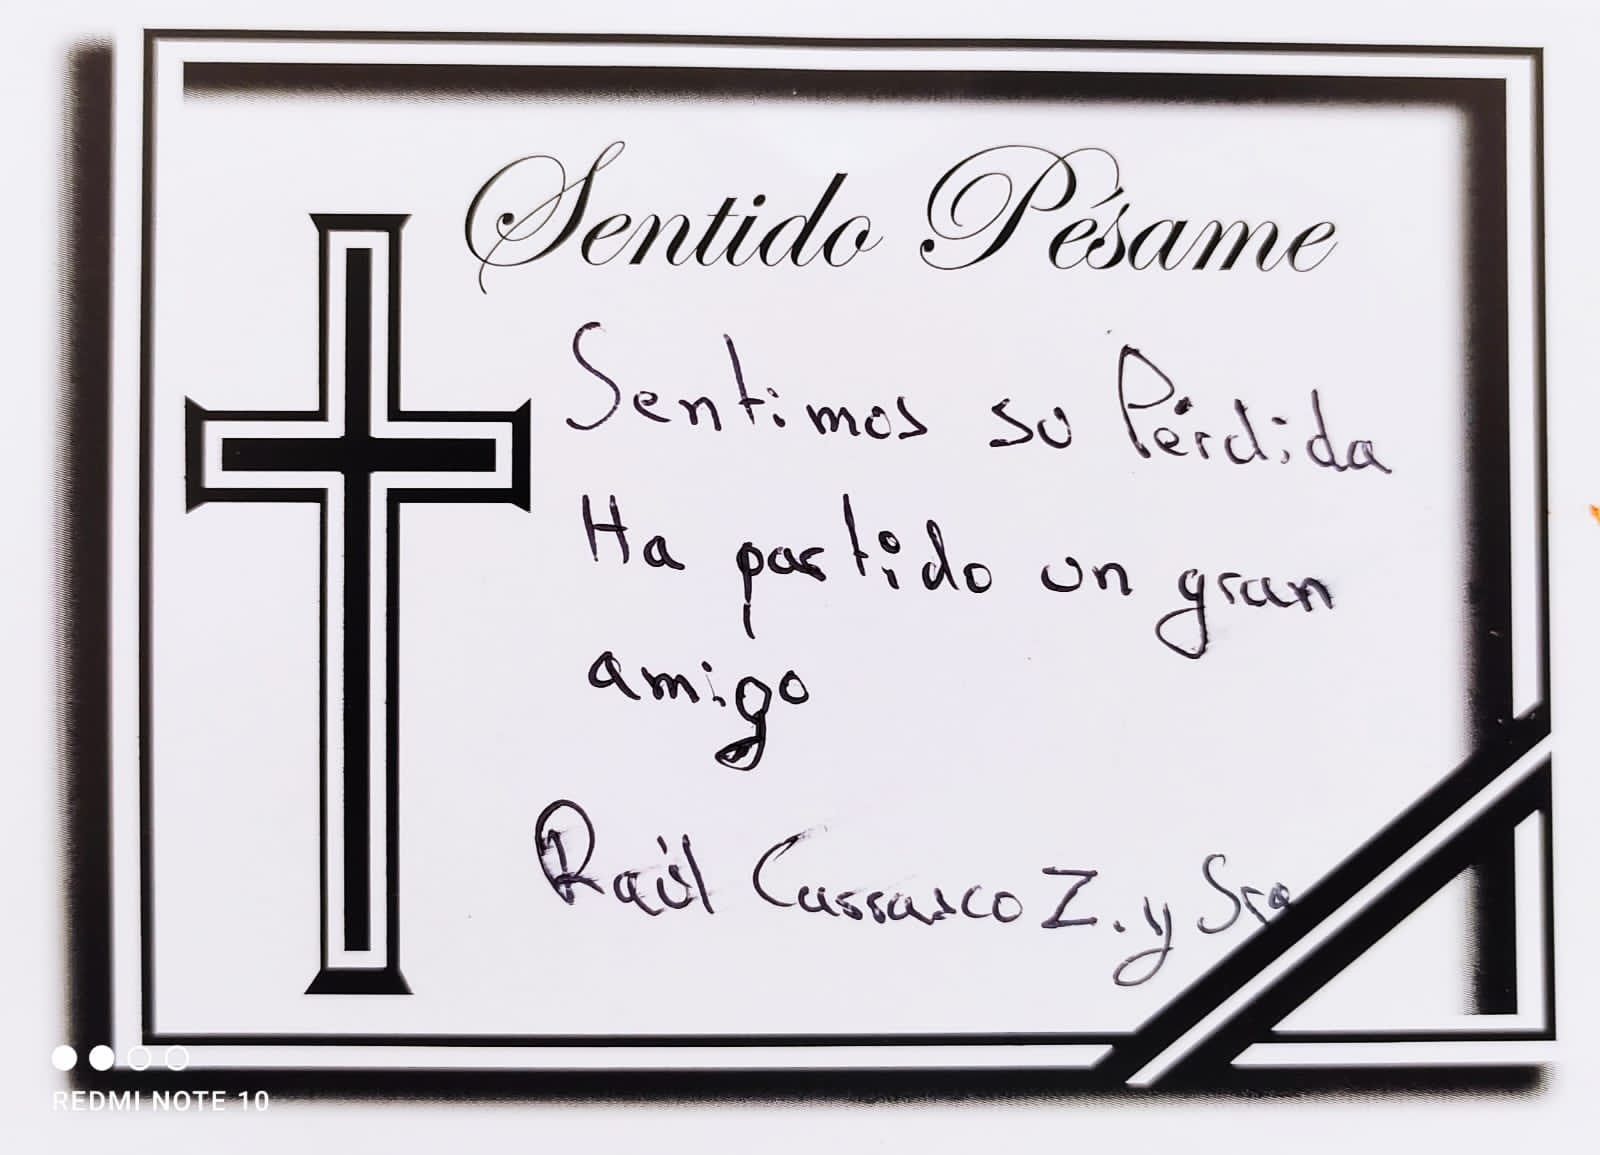 Sentido Pésame
Sentimos su Pérdida
Ha partido un gran
amigo
Raúl Carrasco Z. y Sra
REDMI NOTE 10